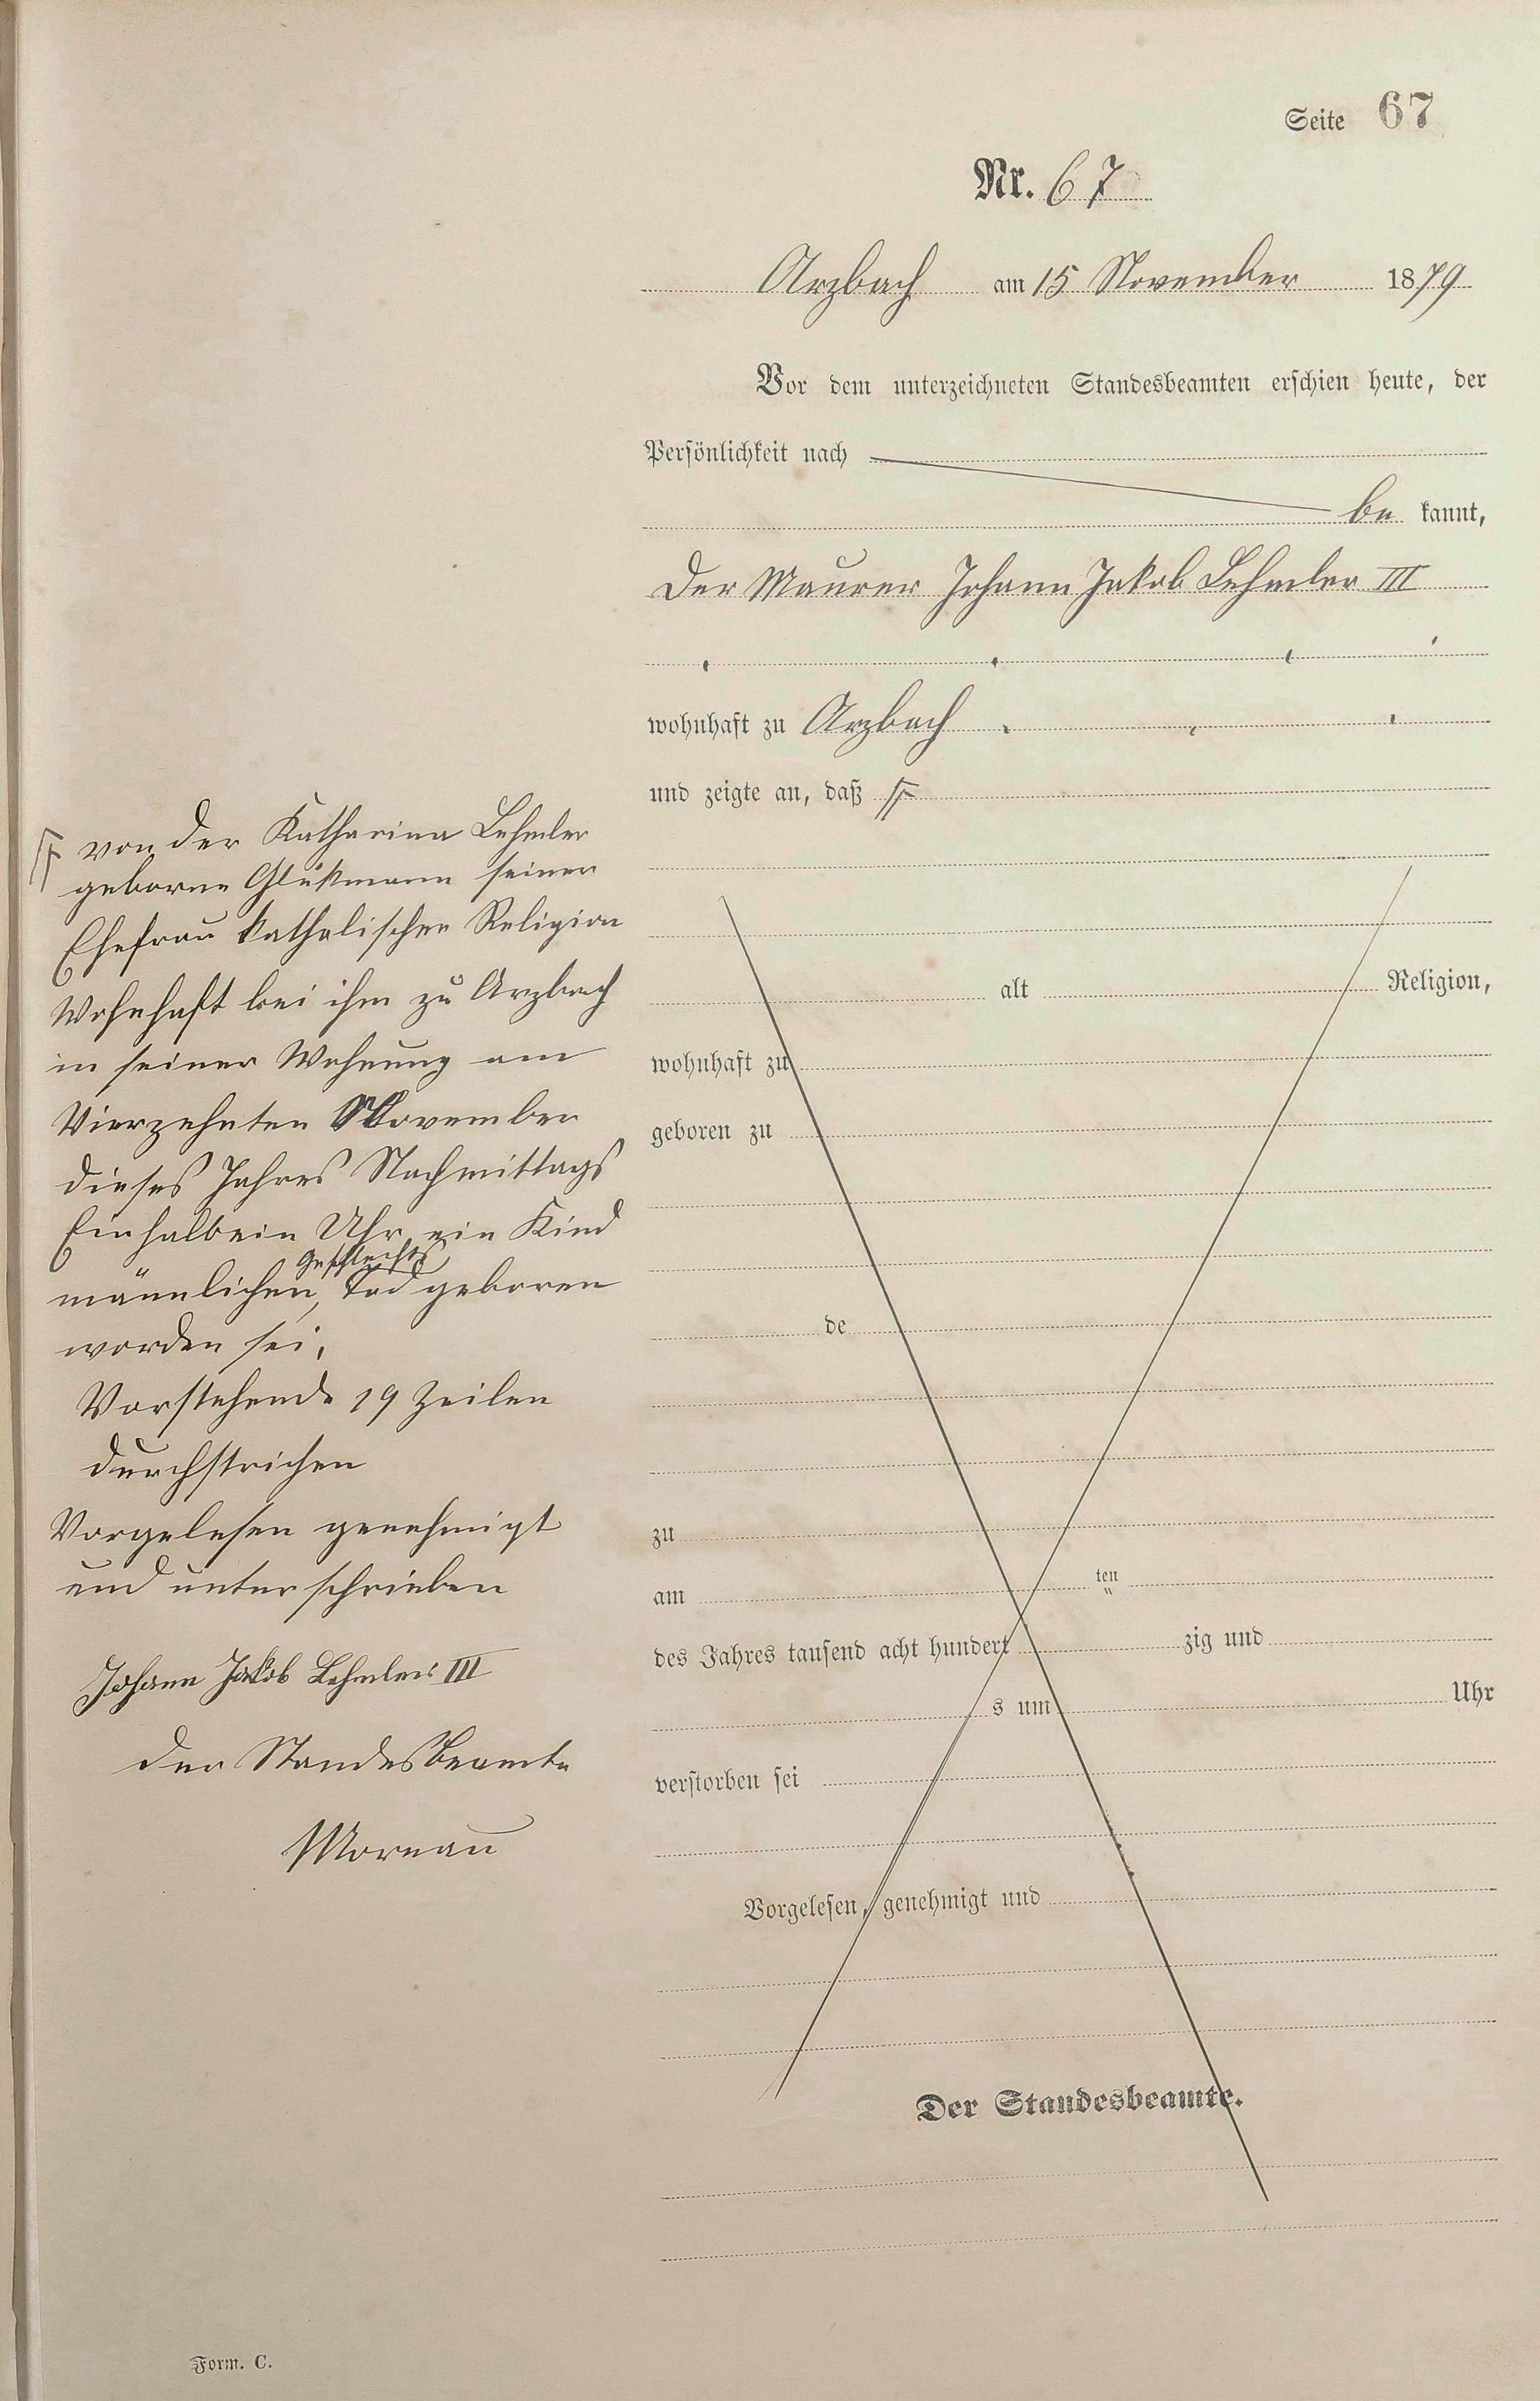 Seite 67
Nr. 67
Arzbach am 15 November 1879
Vor dem unterzeichneten Standesbeamten erschien heute, der
Persönlichkeit nach
be kannt,
der Maurer Johann Jakob Lehmler III
wohnhaft zu Arzbach
und zeigte an, daß
von der Katharina Lehmler
geborne Glükmann seiner
Ehefrau katholischer Religion
wohnhaft bei ihm zu Arzbach
in seiner Wohnung am
Vierzehnten November
dieses Jahres Nachmittags
Einhalbein Uhr ein Kind
männlichen Geschlechts, Tod geboren
worden sei,
Vorstehende 19 Zeilen
durchstrichen
Vorgelesen genehmigt
und unterschrieben
Johann Jakob Lehmler III
der Standesbeamte
Mornau
alt Religion,
wohnhaft zu
geboren zu
de
zu
am ten
des Jahres tausend acht hundert zig und
s um Uhr
verstorben sei
Vorgelesen, genehmigt und
Der Standesbeamte.
Form. C.